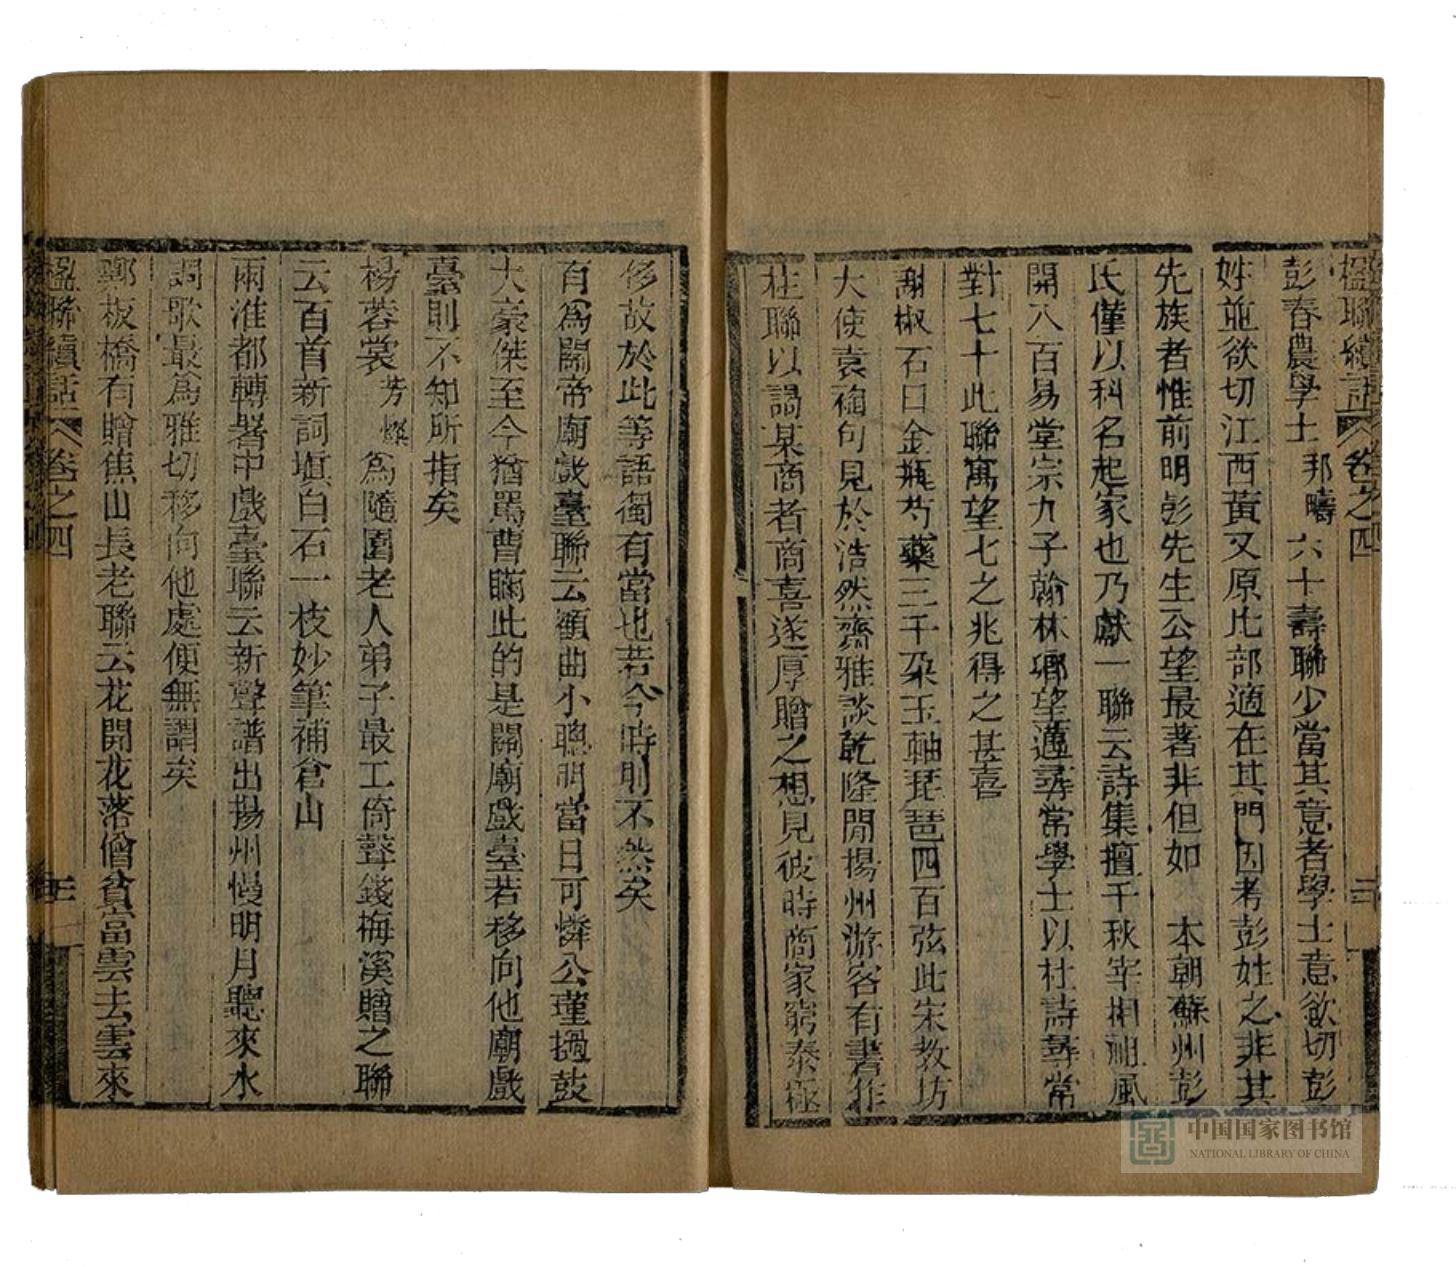 楹聯續話 卷之四 二
彭春農學士邦疇六十壽聯少當其意者學士意欲切彭
姓並欲切江西黃又原比部適在其門因考彭姓之非其
先族者惟前明彭先生公望最著非但如 本朝蘇州彭
氏僅以科名起家也乃獻一聯云詩集擅千秋宰相祖風
開八百易堂宗九子翰林鄉望邁尋常學士以杜詩尋常
對七十此聯寓望七之兆得之甚喜
謝椒石曰金瓶芍藥三千朶玉軸琵琶四百弦此宋教坊
大使袁祹句見於浩然齋雅談乾隆閒揚州游客有書作
柱聯以謁某商者商喜遂厚贈之想見彼時商家窮泰極
侈故於此等語獨有當也若今時則不然矣
有爲關帝廟戯臺聯云顧曲小聰明當日可憐公瑾撾鼓
大豪傑至今猶罵曹瞞此的是關廟戯臺若移向他廟戯
臺則不知所指矣
楊蓉裳芳燦爲隨園老人弟子最工倚聲錢梅溪贈之聯
云百首新詞塡白石一枝妙筆補倉山
兩淮都轉署中戯臺聯云新聲譜出揚州慢明月聽來水
調歌最爲雅切移向他處便無謂矣
鄭板橋有贈焦山長老聯云花開花落僧貧富雲去雲來
楹聯續話 卷之四 三